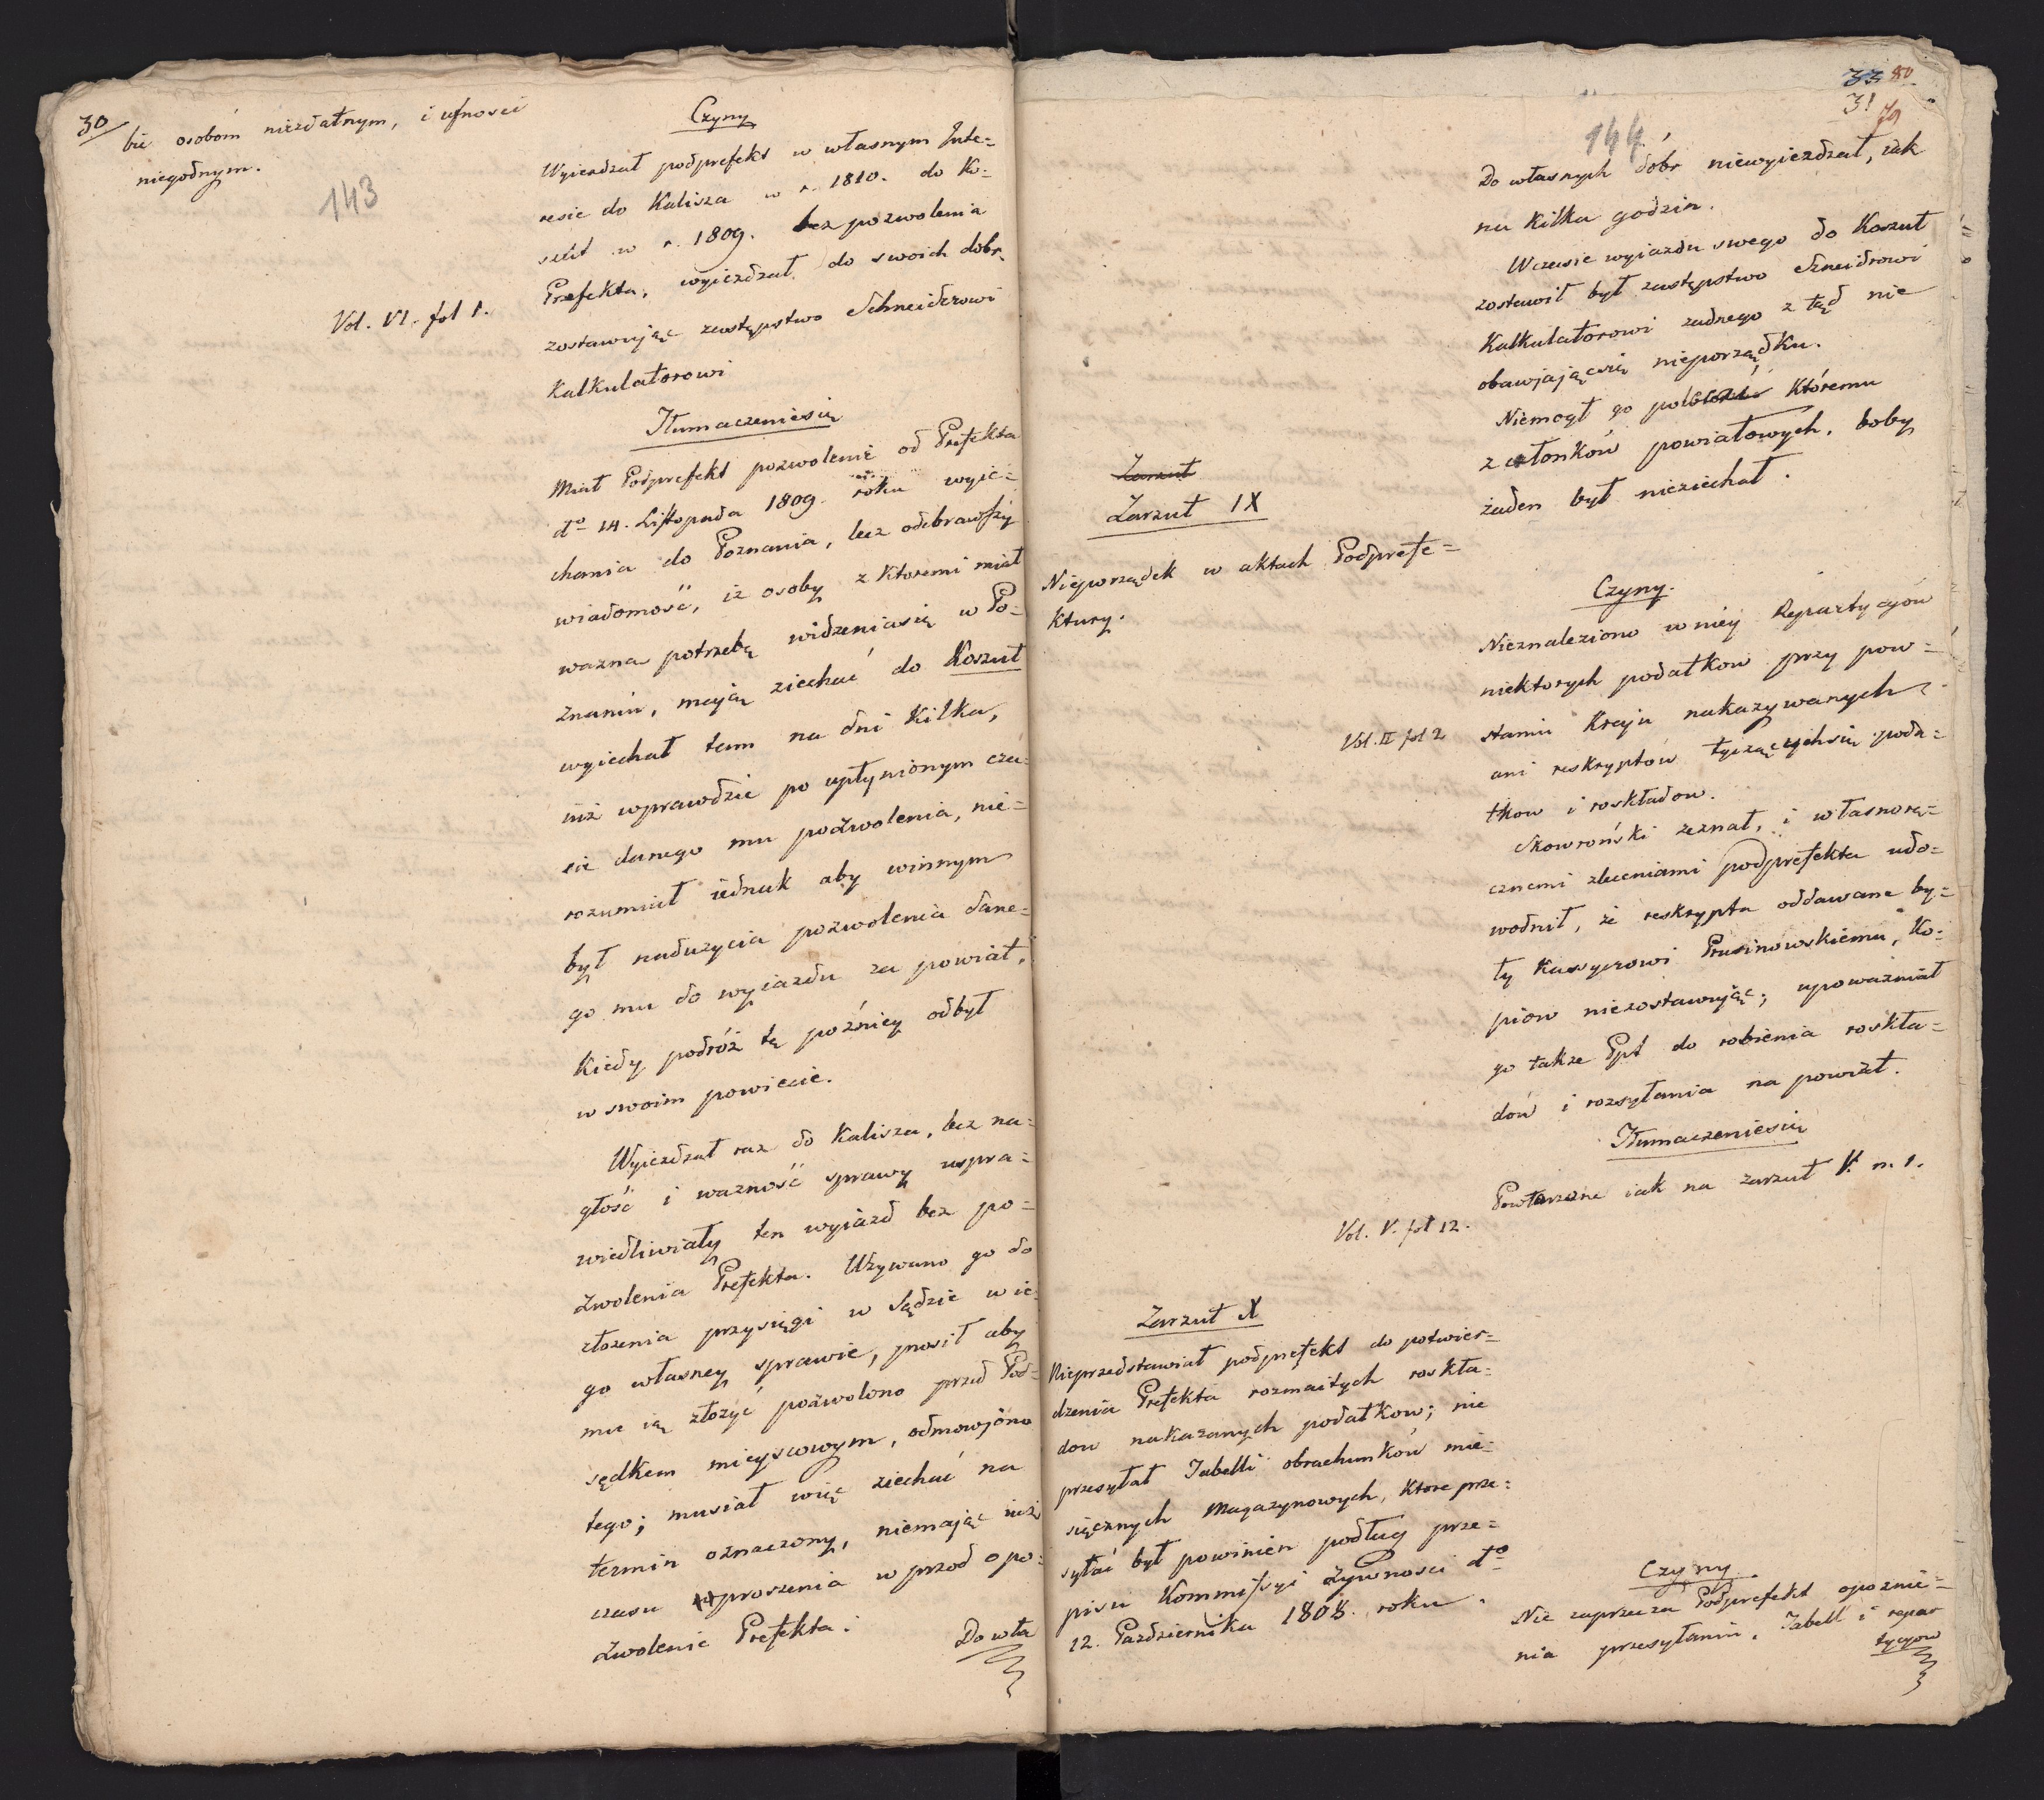 30
bie osobom niezdatnym, i ufnosci
niegodnym.
143
Vol. VI. fol 1.
Czyny
Wyiezdzał podprefekt w własnym Inte=
resie do Kalisza w r. 1810. do Ko=
szut w r. 1809. bez pozwolenia
Prefekta, wyiezdzał do swoich dobr,
zostawuiąc zastępstwo Schneiderowi
Kalkulatorowi
Tłumaczeniesię
Miał Podprefekt pozwolenie od Prefekta
do 14. Listopada 1809. roku wyie=
chania do Poznania, lecz odebrawszy
wiadomość, iz osoby z ktoremi miał
wazna potrzebę widzeniasię w Po=
znaniu, maią ziechać do Koszut
wyiechał tam na dni kilka,
iuz wprawdzie po upłynionym cza=
sie danego mu pozwolenia, nie=
rozumiał iednak aby winnym
był naduzycia pozwolenia dane=
go mu do wyiazdu za powiat,
kiedy podróż tę pózniey odbył
w swoim powiecie.
Wyiezdzał raz do Kalisza, lecz na=
głość i wazność sprawy uspra=
wiedliwiały ten wyiazd bez po=
zwolenia Prefekta. Używano go do
złozenia przysięgi w Sądzie w ie=
go własney sprawie, prosił aby
mu ią złozyć pozwolono przed Pod=
sędkem mieyscowym, odmowiono
tego; musiał więc ziechać na
termin oznaczony, niemaiąc iuż
czasu uproszenia w przod o po=
zwolenie Prefekta.
Do wła
33 80
31 79
144
Do własnych dóbr niewyiezdzał, iak
na kilka godzin.
W czasie wyiazdu swego do Koszut
zostawił był zastępstwo Szneidrowi
Kalkulatorowi zadnego z tąd nie
obawiaiącsię nieporządku.
Niemogł go któremu
z członków powiatowych, boby
żaden był nieziechał.
Zarzut
Zarzut IX
Nieporządek w aktach Podprefe=
ktury.
Czyny.
Nieznaleziono w niey Repartycyów
niektorych podatkow przy pow=
staniu Kraju nakazywanych
Vol. II fol 2
ani reskryptów tyczącychsię poda=
tkow i roskładow.
Skowroński zeznał, i własnorę=
cznemi zleceniami podprefekta udo=
wodnił, że reskrypta oddawane by=
ły Kassyerowi Prusinowskiemu, Ko=
piow niezostawuiąc; upowazniał
go takze Ppt do robienia roskła=
dów i rozsyłania na powiat.
Tłumaczeniesię
Powtarzane iak na zarzut V. n. 1.
Vol. V. fol 12.
Zarzut X
Nieprzedstawiał podprefekt do potwier=
dzenia Prefekta rozmaitych roskła=
dow nakazanych podatkow; nie
przesyłał Tabelli obrachunków mie=
sięcznych Magazynowych, ktore prze=
syłać był powinien podług prze=
pisu Kommissyi Żywnosci do
12. Pazdziernika 1808. roku.
Czyny
Nie zaprzecza Podprefekt opoznie=
nia przesyłaniu, Tabell i repar
tycyow